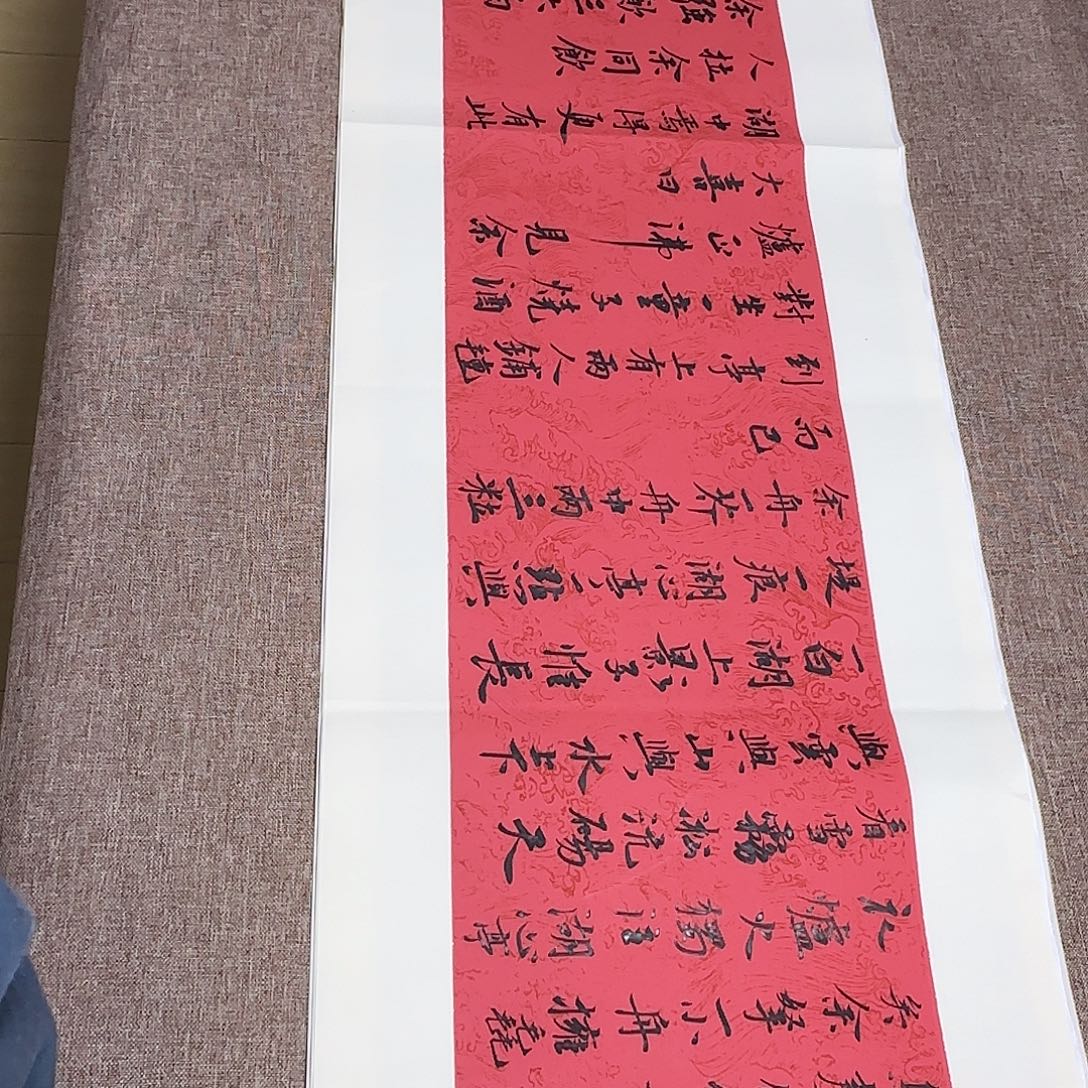 矣余拏一小舟擁毳
衣爐火獨往湖心亭
看雪霧淞沆碭天
與雲與山與水上下
一白湖上影子惟長
堤一痕湖心亭一點與
余舟一芥舟中兩三粒
而已
到亭上有兩人鋪氈
對坐一童子燒酒
爐正沸見余
大喜曰
湖中焉得更有此
人拉余同飲
余強飲三大